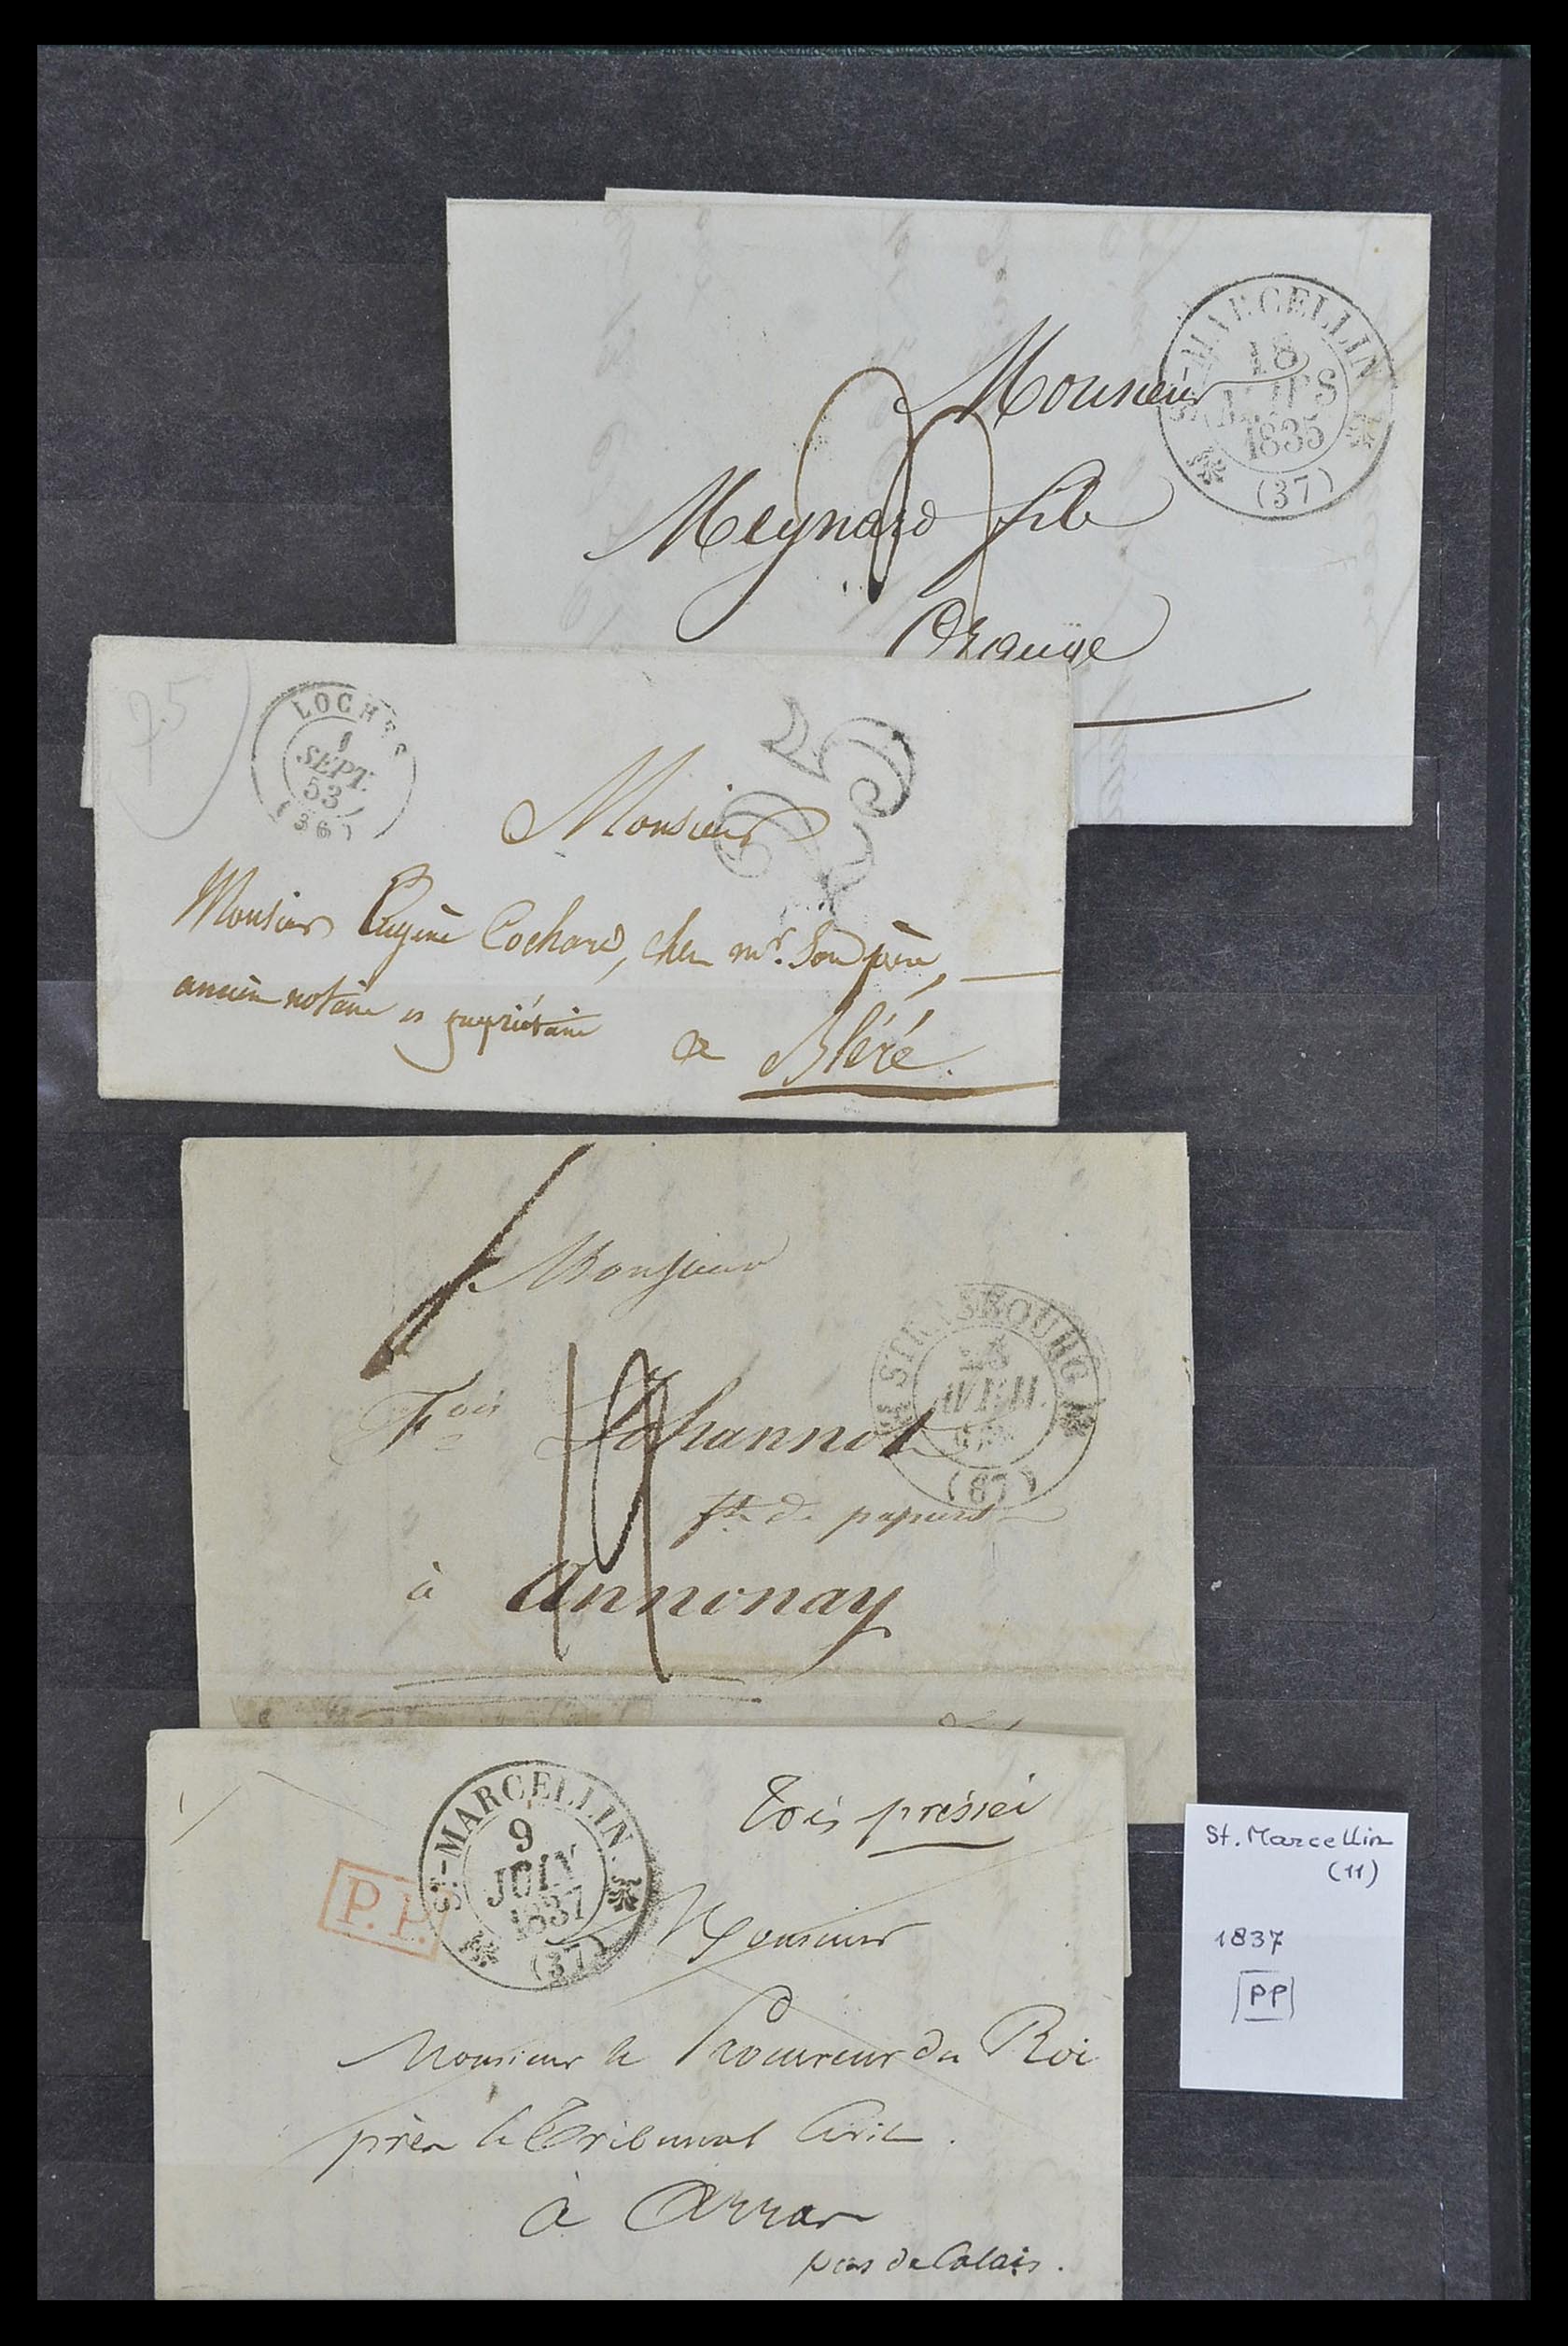 ST-MARCELLIN
18
MARS
1835
(37)
Monsieur
Meynard fils
Orange
75
LOCHES
1
SEPT.
53
(36)
25
Monsieur
Monsieur Eugène Cochard, chez mr. Son père,
ancien notaire et propriétaire
a Bléré.
Monsieur
STRASBOURG
AVRIL
(67)
Fois Johannot
ft de papiers
à Annonay
ST-MARCELLIN.
9
JUIN
1837
(37)
P.P.
Très pressée
Monsieur
Monsieur le Procureur du Roi
près le Tribunal Civil.
à Arras
pas de Calais.
St. Marcellin
(11)
1837
PP